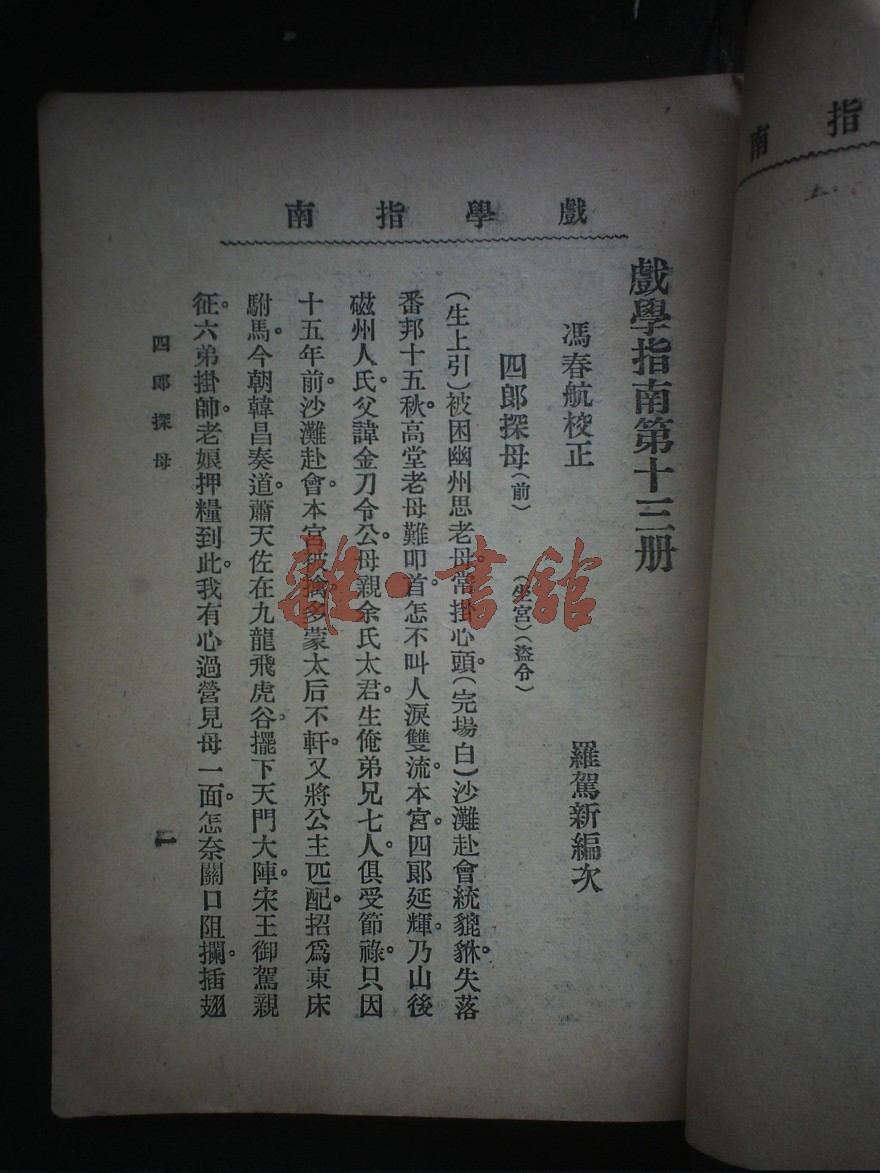 戲學指南
戲學指南第十三册
馮春航校正　羅駕新編次
四郎探母（前）（坐宮）（盜令）
（生上引）被困幽州思老母。常掛心頭。（完場白）沙灘赴會統貔貅。失落
番邦十五秋。高堂老母難叩首。怎不叫人淚雙流。本宮。四郎延輝。乃山後
磁州人氏。父諱金刀令公。母親余氏太君。生俺弟兄七人。俱受節祿。只因
十五年前。沙灘赴會。本宮被擒。多蒙太后不軒。又將公主匹配。招爲東床
駙馬。今朝韓昌奏道。蕭天佐在九龍飛虎谷。擺下天門大陣。宋王御駕親
征。六弟掛帥。老娘押糧到此。我有心過營見母一面。怎奈關口阻攔。插翅
四郎探母
一
指南
雜·書館